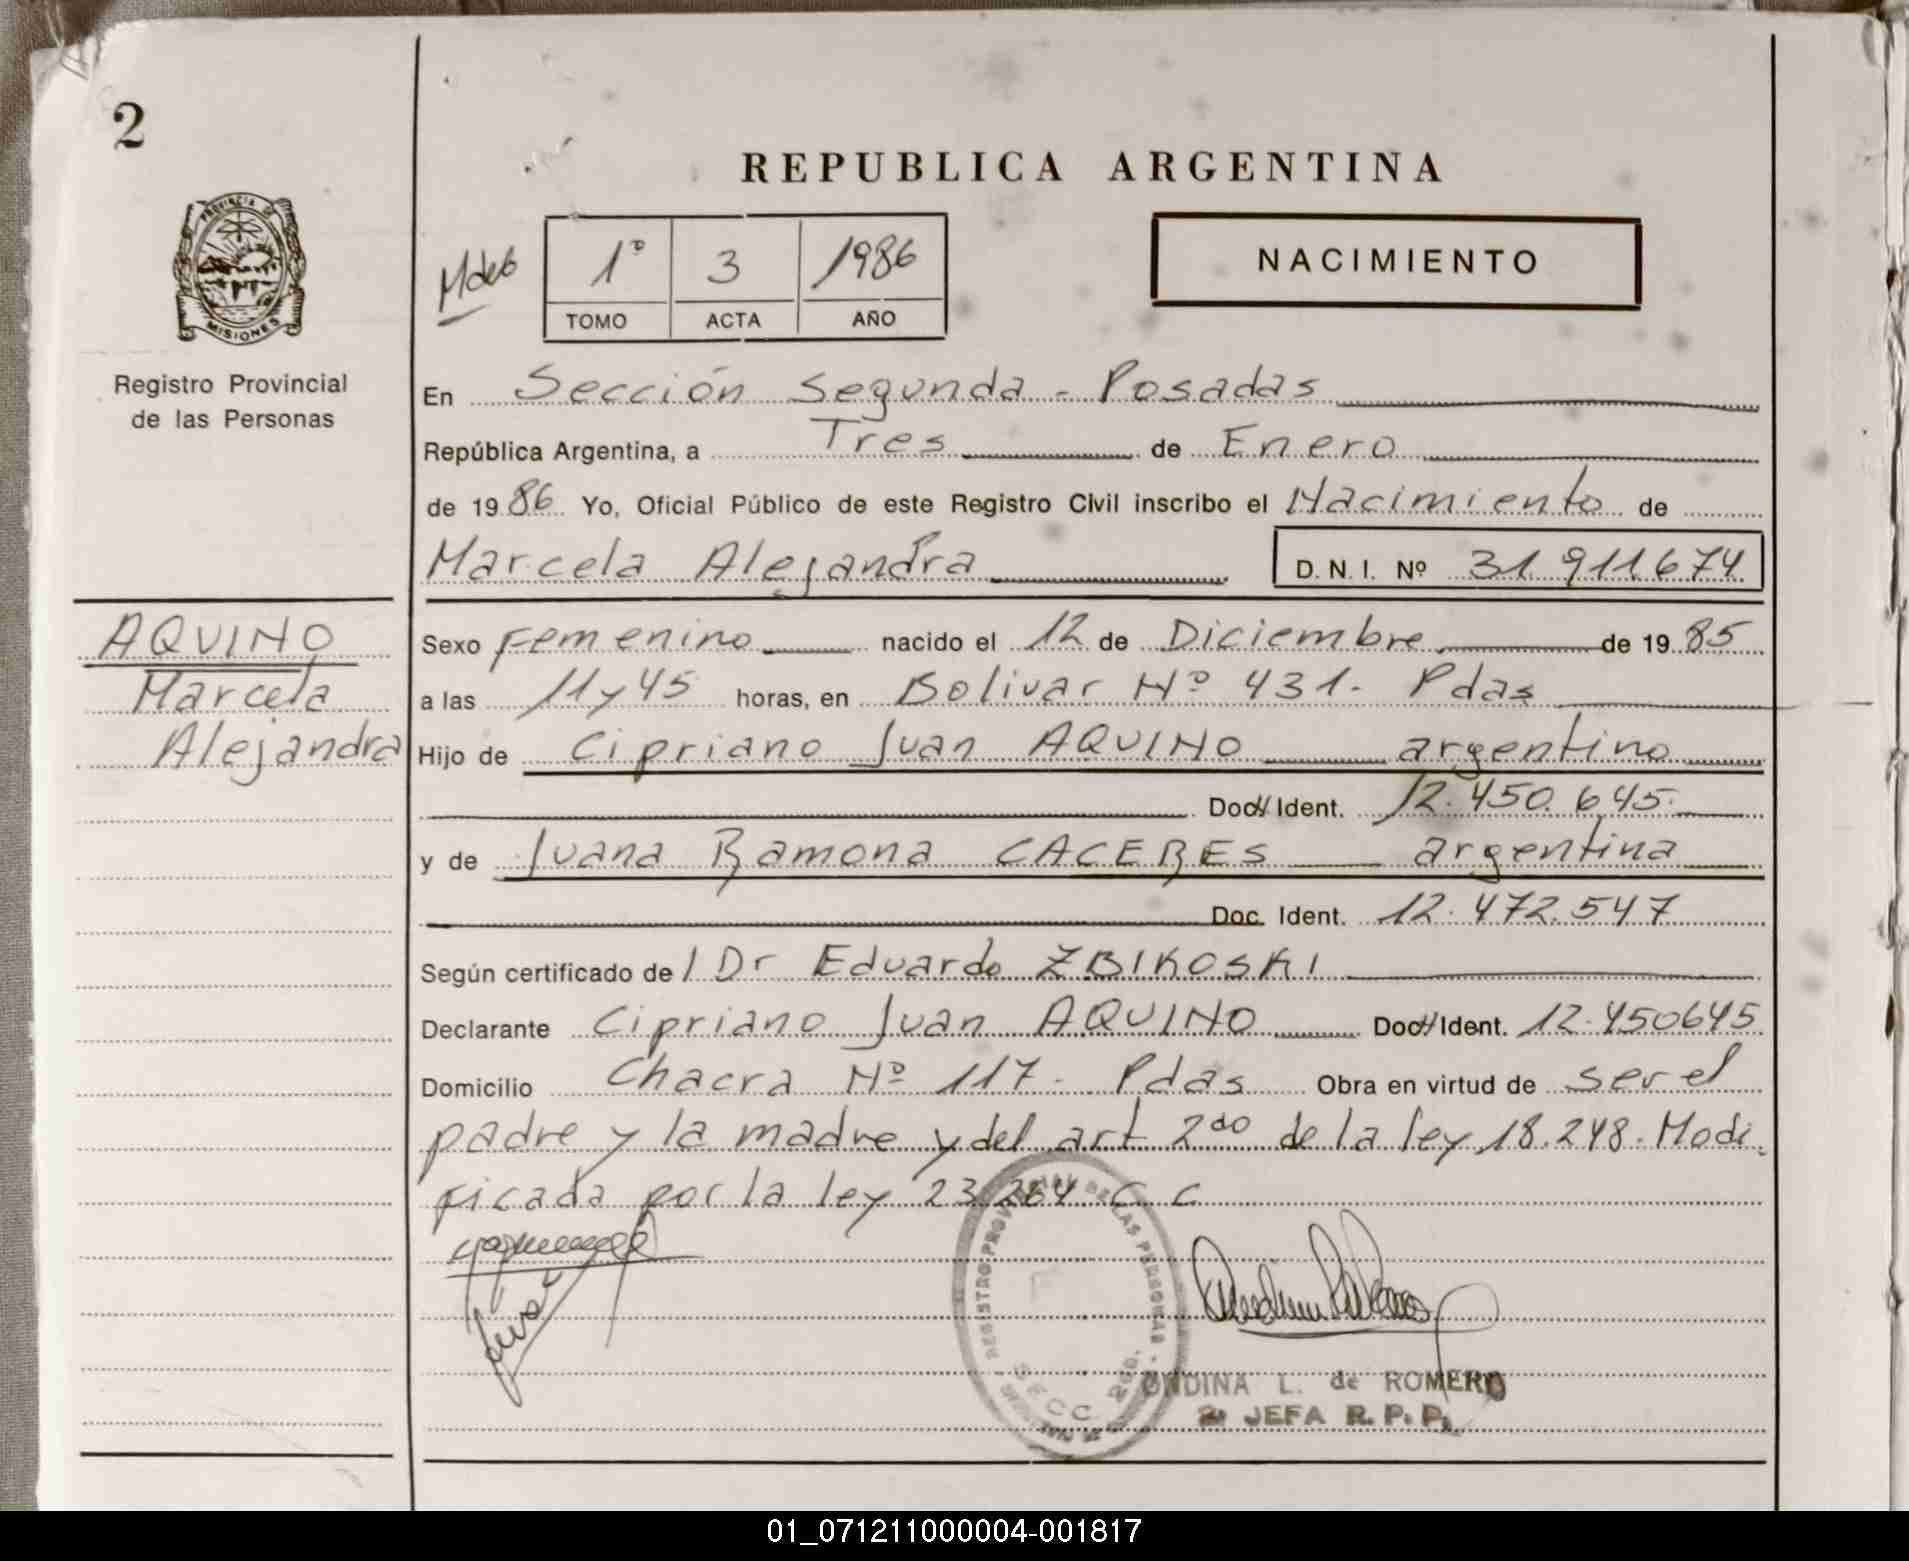 2
PROVINCIA DE
MISIONES
Registro Provincial
de las Personas
REPUBLICA ARGENTINA
1º 3 1986
TOMO ACTA AÑO
NACIMIENTO
En Sección Segunda - Posadas
República Argentina, a Tres de Enero
de 1986 Yo, Oficial Público de este Registro Civil inscribo el Nacimiento de
Marcela Alejandra D.N.I. Nº 31.911.674
AQUINO
Marcela
Alejandra
Sexo Femenino nacido el 12 de Diciembre de 1985
a las 11 y 45 horas, en Bolivar Nº 431. Pdas
Hijo de Cipriano Juan AQUINO argentino
Doc. Ident. 12.450.645.
y de Juana Ramona CACERES argentina
Doc. Ident. 12.472.547
Según certificado de Dr Eduardo ZBIKOSKI
Declarante Cipriano Juan AQUINO Doc. Ident. 12.450645
Domicilio Chacra Nº 117. Pdas Obra en virtud de ser el
padre y la madre y del art 2do de la ley 18.248. Modi
ficada por la ley 23.264 C C
REGISTRO PROVINCIAL DE LAS PERSONAS
SECC. 2da.
ONDINA L. de ROMERO
JEFA R.P.P.
01_071211000004-001817